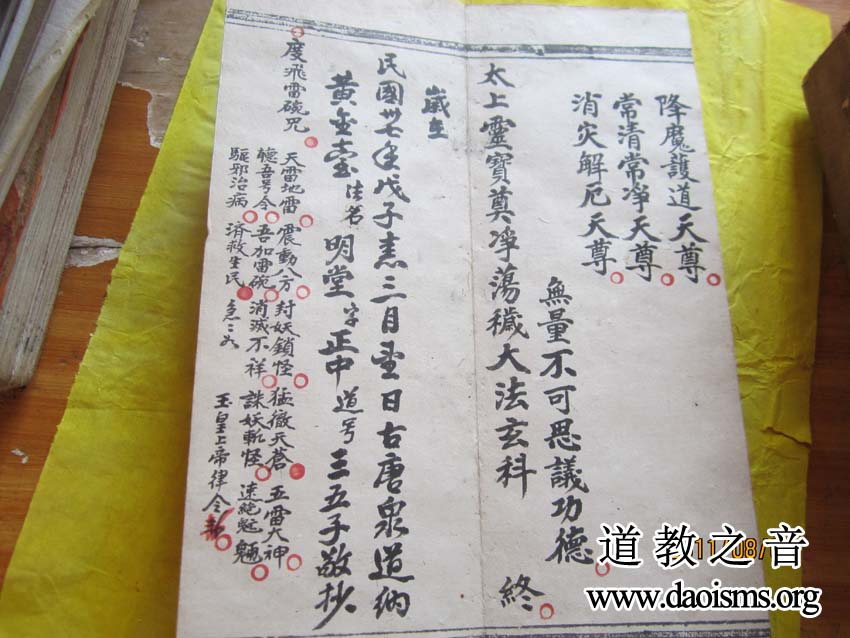 降魔護道天尊
常清常淨天尊
消灾解厄天尊
無量不可思議功德
太上靈寳奠淨蕩穢大法玄科 終
歲在
民國卅七年戊子春三月 日古唐泉道納
黃金臺 法名 明堂 字 正中 道号 三五子敬抄
度飛雷碗咒
天雷地雷 震動八方 封妖鎖怪 猛徹天蒼 五雷大神
聽吾号令 吾加雷碗 消滅不祥 誅妖斬怪 速絶魃魎
驅邪治病 濟救生民 玉皇上帝律令
道教之音
www.daoisms.org